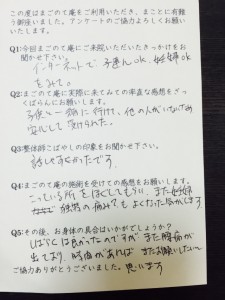 この度はまごのて庵をご利用いただき、まことに有難
う御座いました。アンケートのご協力よろしくお願い
いたします。
Q1:今回まごのて庵にご来院いただいたきっかけをお
聞かせ下さい。
インターネットで 子連れOK、妊婦OK
をみて。
Q2:まごのて庵に実際に来てみての率直な感想をざっ
くばらんにお願いします。
子供と一緒に行けて、他の人がいないので
安心して受けられた。
Q3:整体師こばやしの印象をお聞かせ下さい。
話しやすかったです。
Q4:まごのて庵の施術を受けての感想をお願いします。
こっている所をほぐしてもらい、また妊婦
独特の痛みもよくなった気がします
Q5:その後、お身体の具合はいかがでしょうか?
しばらくは良かったのですが また腰痛が
出ており、時間があれば またお願いしたいと
ご協力ありがとうございました。思います